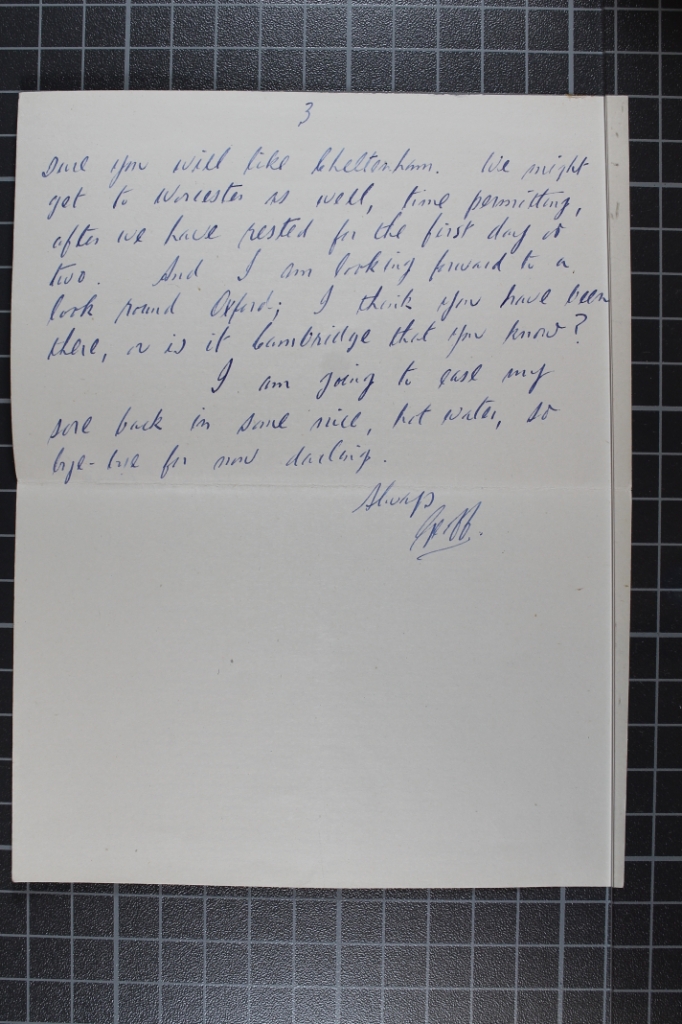 3
sure you will like Cheltenham. We might
get to Worcester as well, time permitting,
after we have rested for the first day or
two. And I am looking forward to a
look round Oxford; I think you have been
there, or is it Cambridge that you know?
I am going to ease my
sore back in some nice, hot water, so
bye-bye for now darling.
Always